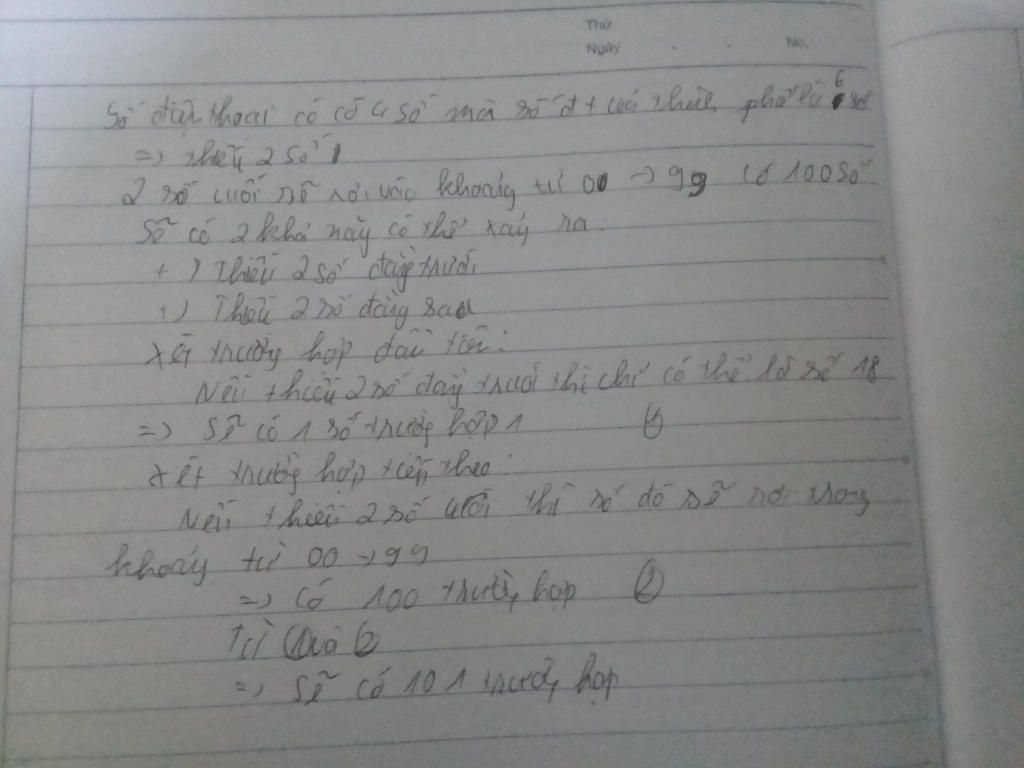 Thứ
Ngày . . No.
Số điện thoại cố có 4 số mà số đt của thành phố là 6 số
=> thiếu 2 số
2 số cuối sẽ rơi vào khoảng từ 00 -> 99 có 100 số
Sẽ có 2 khả năng có thể xảy ra :
+ ) Thiếu 2 số đằng trước
+ ) Thiếu 2 số đằng sau
Xét trường hợp đầu tiên :
Nếu thiếu 2 số đằng trước thì chỉ có thể là số 18
=> Sẽ có 1 số trường hợp 1 (1)
Xét trường hợp tiếp theo :
Nếu thiếu 2 số cuối thì số đó sẽ rơi trong
khoảng từ 00 -> 99
=> Có 100 trường hợp (2)
Từ (1) và (2)
=> Sẽ có 101 trường hợp